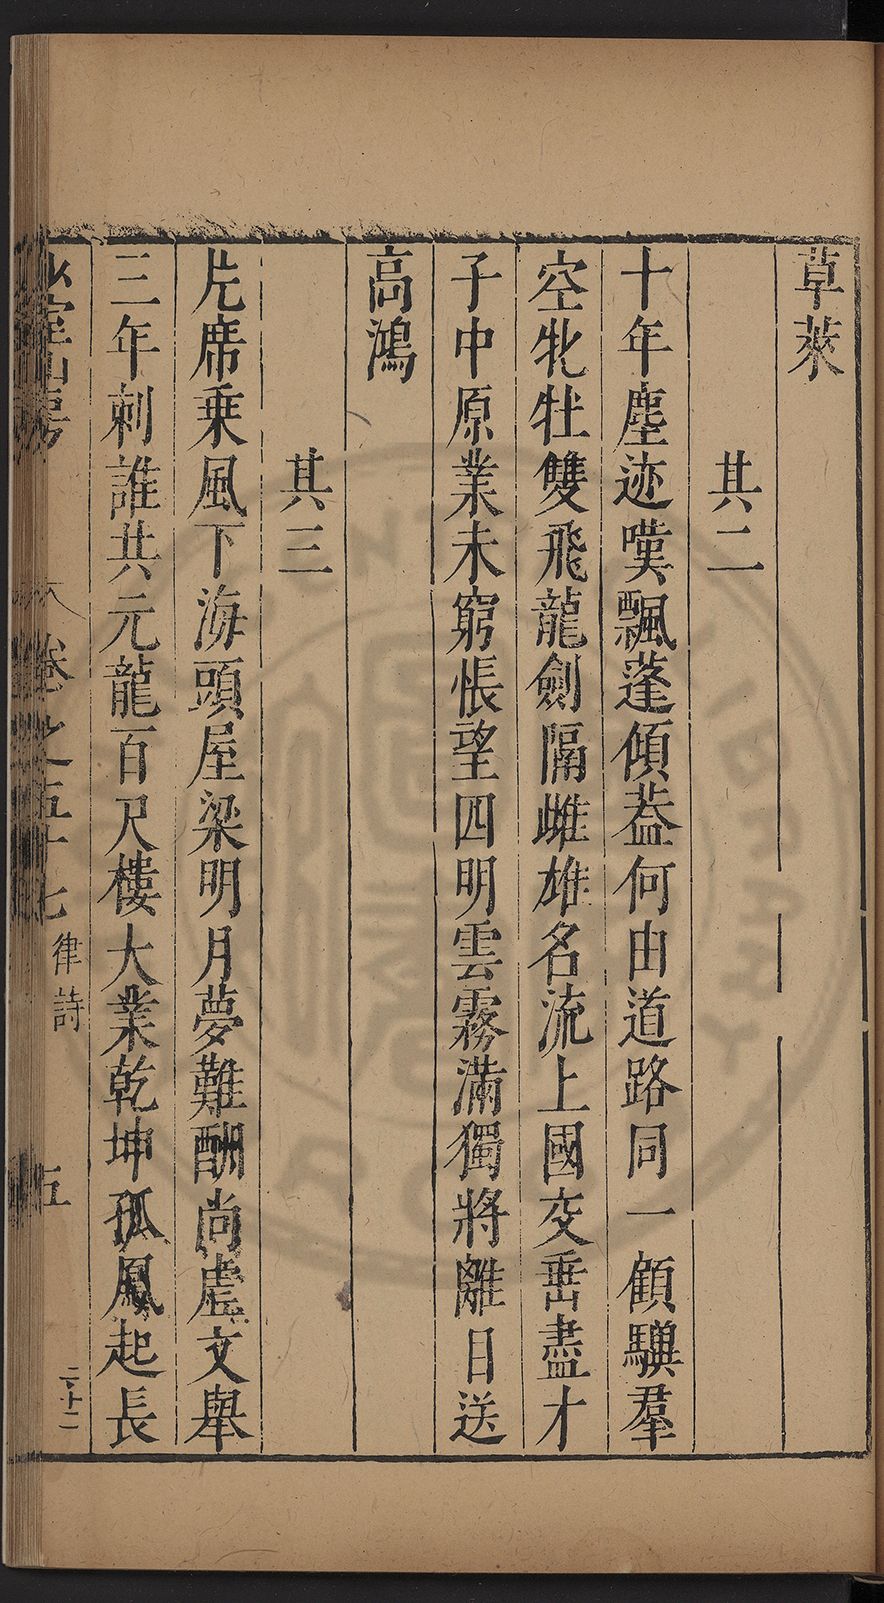 草萊
其二
十年塵迹嘆飄蓬傾葢何由道路同一顧驥羣
空牝牡雙飛龍劍隔雌雄名流上國交垂盡才
子中原業未窮悵望四明雲霧滿獨將離日送
高鴻
其三
片席乗風下海頭屋梁明月夢難酬尚虛文舉
三年刺誰共元龍百尺樓大業乾坤孤鳳起長
山房 卷之五十七 律詩 五
二十二